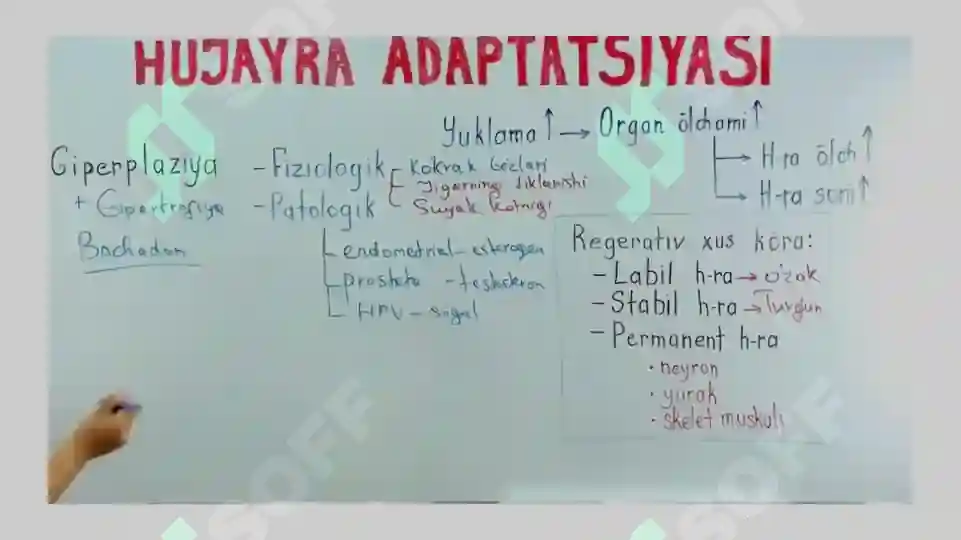 HUJAYRA ADAPTATSIYASI
Yuklama↑ → Organ ölchami↑
→ H-ra ölch↑
→ H-ra soni↑
Giperplaziya
+ Gipertrofiya
Bachadon
- Fiziologik
Kokrak bezlari
Jigarning tiklanishi
Suyak komigi
- Patologik
endometrial - esterogen
prostata - testekron
HPV - sogal
Regerativ xus köra:
- Labil h-ra → o'zak
- Stabil h-ra → Turgun
- Permanent h-ra
• neyron
• yurak
• skelet muskuli
SOFF
SOFF
SOFF
SOFF
SOFF
SOFF